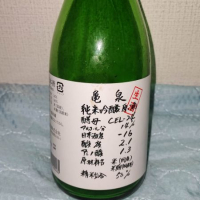 亀泉
生酒
純米吟醸原酒
酵母 CEL-24
アルコール分
日本酒度 -16
酸度 2.1
アミノ酸 1.3
原料米
精米歩合 50%